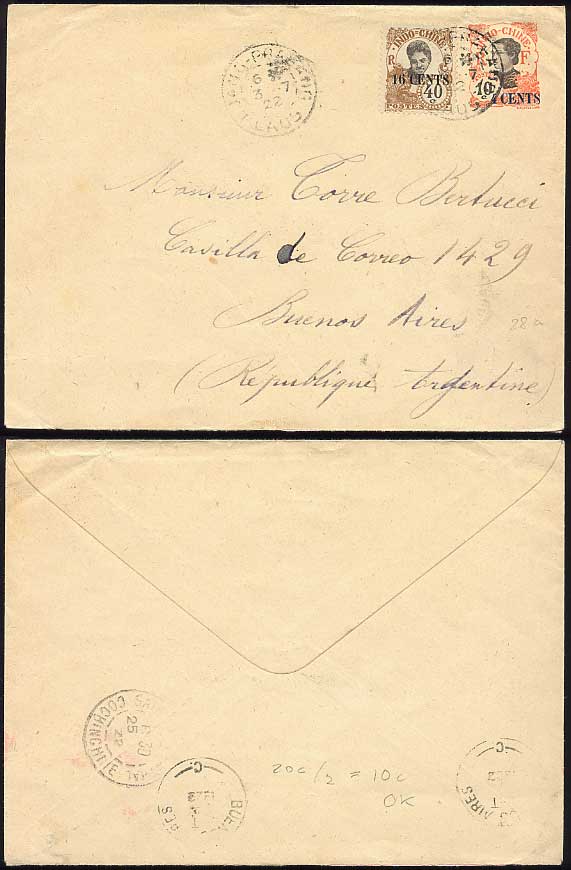 INDO-CHINE
R F
16 CENTS
40
POSTES
INDO-CHINE
F
10
4 CENTS
6
3 -7
22
LAOS
Monsieur Corre Bertucci
Casilla de Correo 1429
Buenos Aires
28
(République Argentine)
COCHINCHINE
6 30
25
22
20c/2 = 10c
OK
BUEN
C.
C.
AIRES